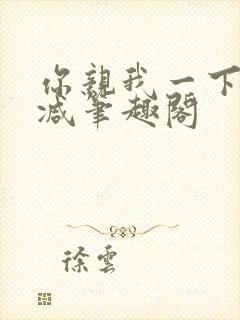 你親我一下
減筆趣閣
徐雲